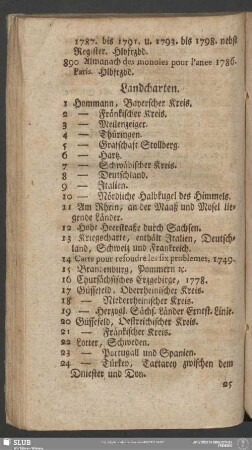 1787. bis 1791. u. 1793. bis 1798. nebst
Register. Hlbfrzbd.
890 Almanach des monoies pour l'anee 1786.
Paris. Hlbfrzbd.
Landcharten.
1 Hommann, Bayerscher Kreis.
2 — Fränkischer Kreis.
3 — Meilenzeiger.
4 — Thüringen.
5 — Grafschaft Stollberg.
6 — Hartz.
7 — Schwäbischer Kreis.
8 — Deutschland.
9 — Italien.
10 — Nördliche Halbkugel des Himmels.
11 Am Rhein, an der Maaß und Mosel lie-
gende Länder.
12 Hohe Heerstraße durch Sachsen.
13 Kriegscharte, enthält Italien, Deutsch-
land, Schweiz und Frankreich.
14 Carte pour resoudre les six problemes. 1749.
15 Brandenburg, Pommern ꝛc.
16 Chursächsisches Erzgebirge, 1778.
17 Güssefeld, Oberrheinischer Kreis.
18 — Niederrheinischer Kreis.
19 — Herzogl. Sächs. Länder Ernest. Linie.
20 Güssefeld, Oestreichischer Kreis.
21 — Fränkischer Kreis.
22 Lotter, Schweden.
23 — Portugall und Spanien.
24 — Türkey, Tartarey zwischen dem
Dniester und Don.
25
SLUB